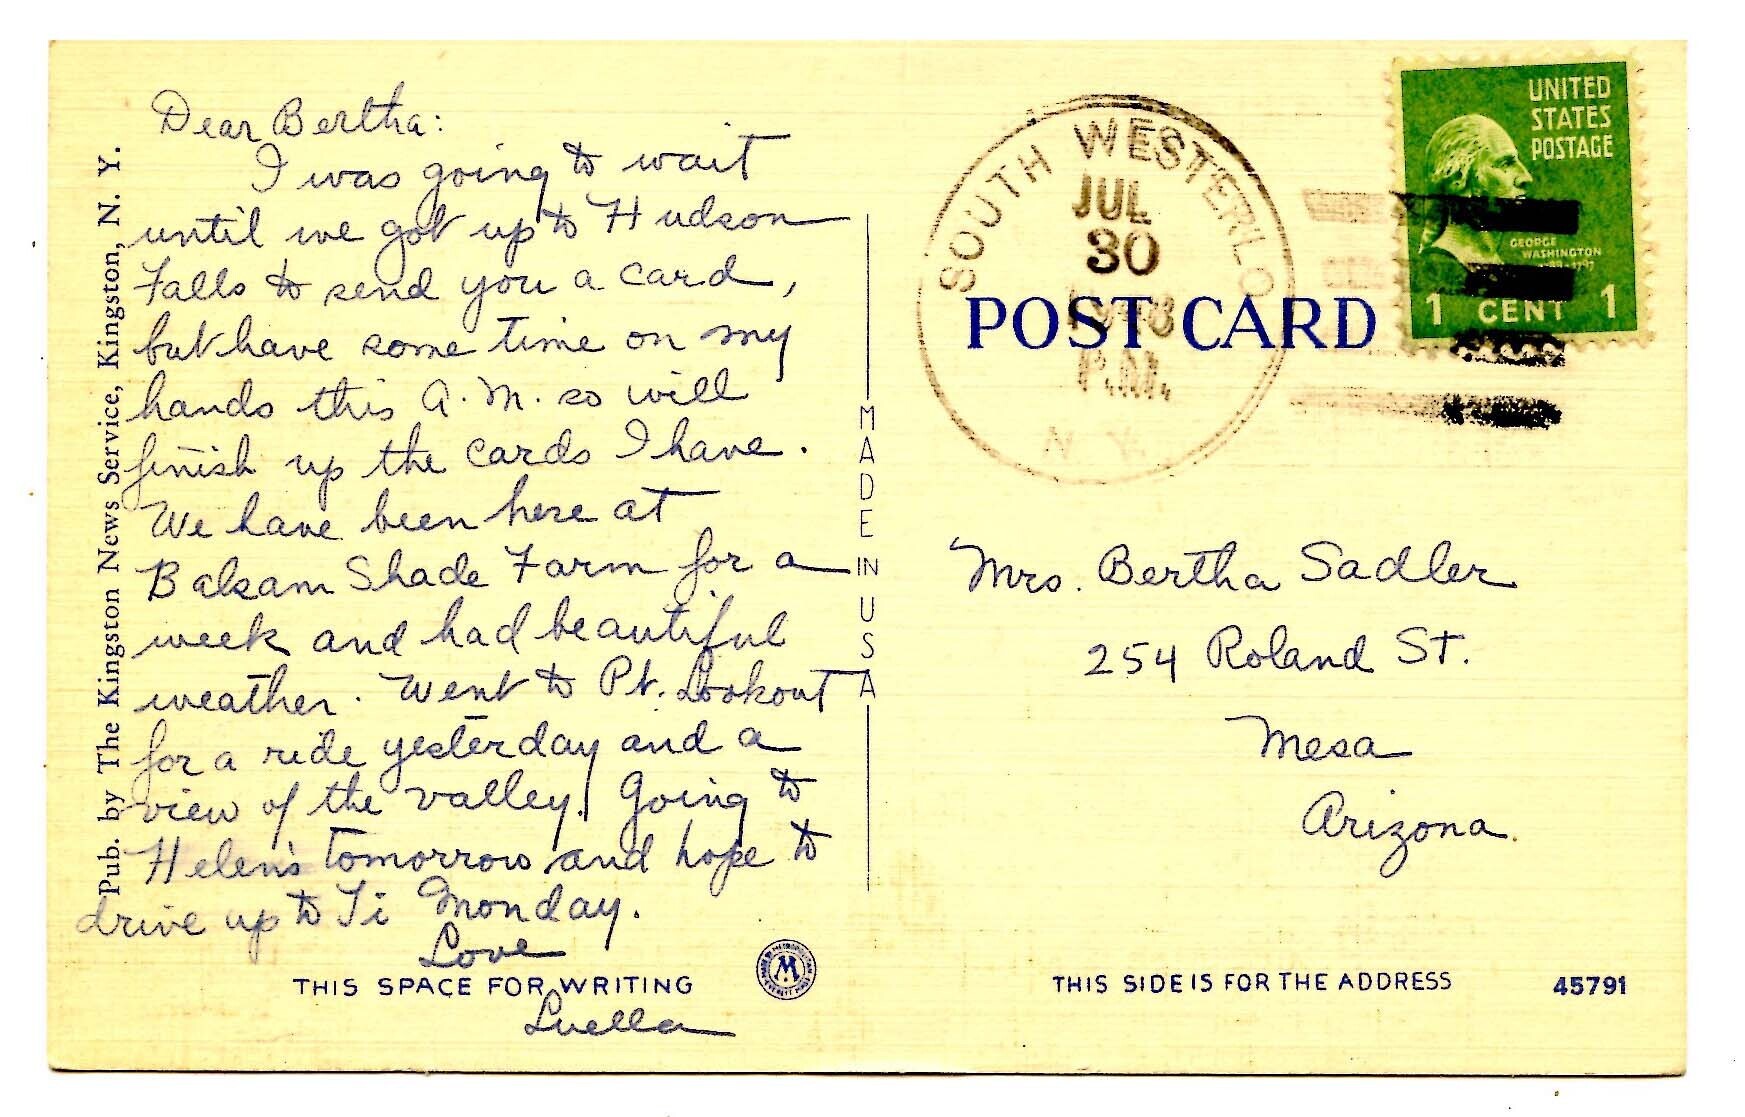 Pub. by The Kingston News Service, Kingston, N. Y.
Dear Bertha:
I was going to wait
until we got up to Hudson
Falls to send you a card,
but have some time on my
hands this A.M. so will
finish up the cards I have.
We have been here at
Balsam Shade Farm for a
week and had beautiful
weather. Went to Pt. Lookout
for a ride yesterday and a
view of the valley. Going to
Helen's tomorrow and hope to
drive up to Ti Monday.
Love
THIS SPACE FOR WRITING
Luella
M
MADE IN USA
SOUTH WESTERLO
JUL
30
P.M.
N.Y.
POST CARD
UNITED
STATES
POSTAGE
GEORGE
WASHINGTON
1 CENT 1
Mrs. Bertha Sadler
254 Roland St.
Mesa
Arizona.
THIS SIDE IS FOR THE ADDRESS
45791